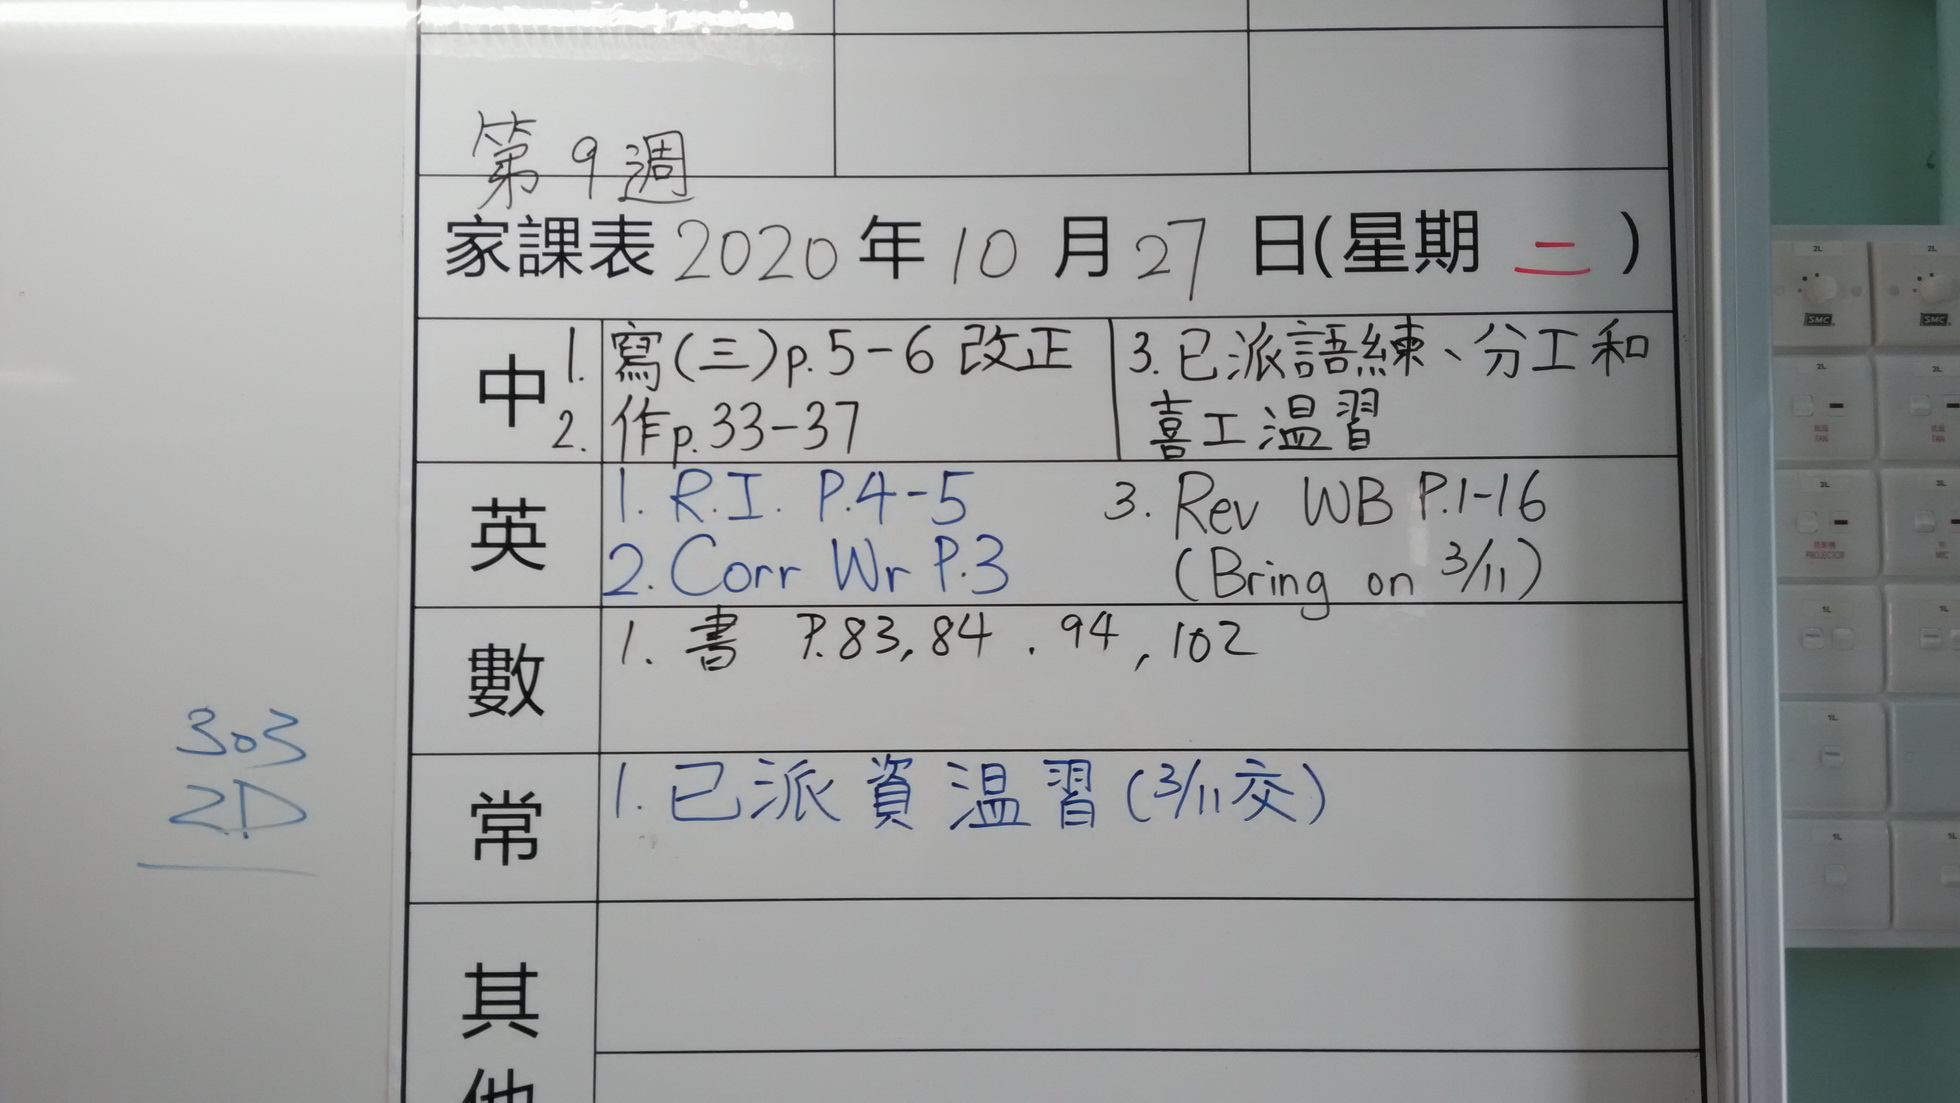 第9週
家課表 2020 年 10 月 27 日(星期 二 )
中
1. 寫(三)p.5-6 改正
2. 作p.33-37
3. 已派語練、分工和
喜工溫習
英
1. R.I. P.4-5
2. Corr Wr P.3
3. Rev WB P.1-16
(Bring on 3/11)
數
1. 書 P.83,84 . 94 , 102
常
1. 已派資溫習(3/11交)
其
他
303
2D
2L
2L
SMC
SMC
2L
2L
FAN
FAN
2L
PROJECTOR
1L
1L
1L
1L
1L